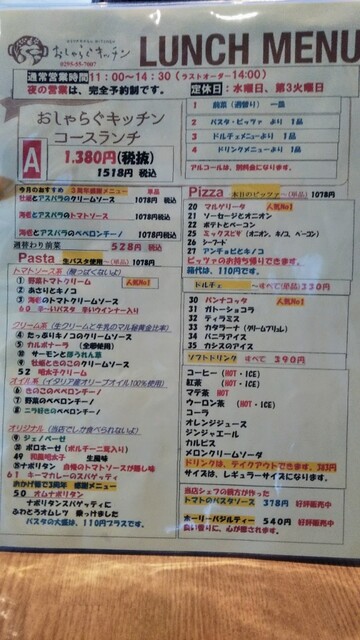 おしゃらぐキッチン
LUNCH MENU
0295-55-7007
通常営業時間11:00~14:30(ラストオーダー14:00)
夜の営業は、完全予約制です。
定休日:水曜日、第3火曜日
おしゃらぐキッチン
コースランチ
A
1.380円(税抜)
1518円 税込
1 前菜(週替り) 一品
2 パスタ・ピッツァ より 1品
3 ドルチェメニューより 1品
4 ドリンクメニューより 1品
アルコールは、別料金になります。
今月のおすすめ 3周年感謝メニュー 単品
牡蛎とアスパラのクリームソース 1078円 税込
海老とアスパラのトマトソース 1078円 税込
海老とアスパラのペペロンチーノ 1078円 税込
週替わり前菜 528円 税込
Pasta 生パスタ使用 ~(単品) 1078円
トマトソース系 (酸っぱくないよ)
① 野菜トマトクリーム 人気No1
② あさりとキノコ
③ 海老のトマトクリームソース
60 辛~いパスタ 辛いウインナー入り
クリーム系 (生クリームと牛乳のマル秘黄金比率)
④ たっぷりキノコのクリームソース
⑤ カルボナーラ (全卵使用)
⑩ サーモンとほうれん草
⑨ 牡蛎ときのこのクリームソース
52 明太子クリーム
オイル系 (イタリア産オリーブオイル100%使用)
⑥ きのこのペペロンチーノ
⑦ 野菜のペペロンチーノ
⑧ ニラ好きのペペロンチーノ
オリジナル (当店でしか食べられないよ)
ジェノベーゼ
ボロネーゼ (ポルチーニ茸入り)
49 和風明太子 生風味
ナポリタン 自慢のトマトソースが隠し味
61 キーマカレーのスパゲッティ
おかげ様で3周年 感謝メニュー
50 オムナポリタン
ナポリタンスパゲティに
ふわとろオムレツ 乗っけました
パスタの大盛は、110円プラスです。
Pizza 本日のピッツァ ~(単品) 1078円
20 マルゲリータ 人気No1
21 ソーセージとオニオン
22 ポテトとベーコン
25 ミックスピザ (オニオン、キノコ、ベーコン)
26 シーフード
27 アンチョビとキノコ
ピッツァのお持ち帰りできます。
箱代は、110円です。
ドルチェ ~すべて(単品) 330円
30 パンナコッタ 人気No1
31 ガトーショコラ
32 ティラミス
33 カタラーナ (クリームブリュレ)
34 バニラアイス
35 カシスのアイス
ソフトドリンク すべて 390円
コーヒー (HOT・ICE)
紅茶 (HOT・ICE)
マテ茶 HOT
ウーロン茶 (HOT・ICE)
コーラ
オレンジジュース
ジンジャエール
カルピス
メロンクリームソーダ
ドリンクは、テイクアウトできます。383円
サイズは、レギュラーサイズになります。
当店シェフの親方が作った
トマトのパスタソース 378円 好評販売中
ホーリーバジルティー 540円 好評販売中
良い香りに、心が癒されます。